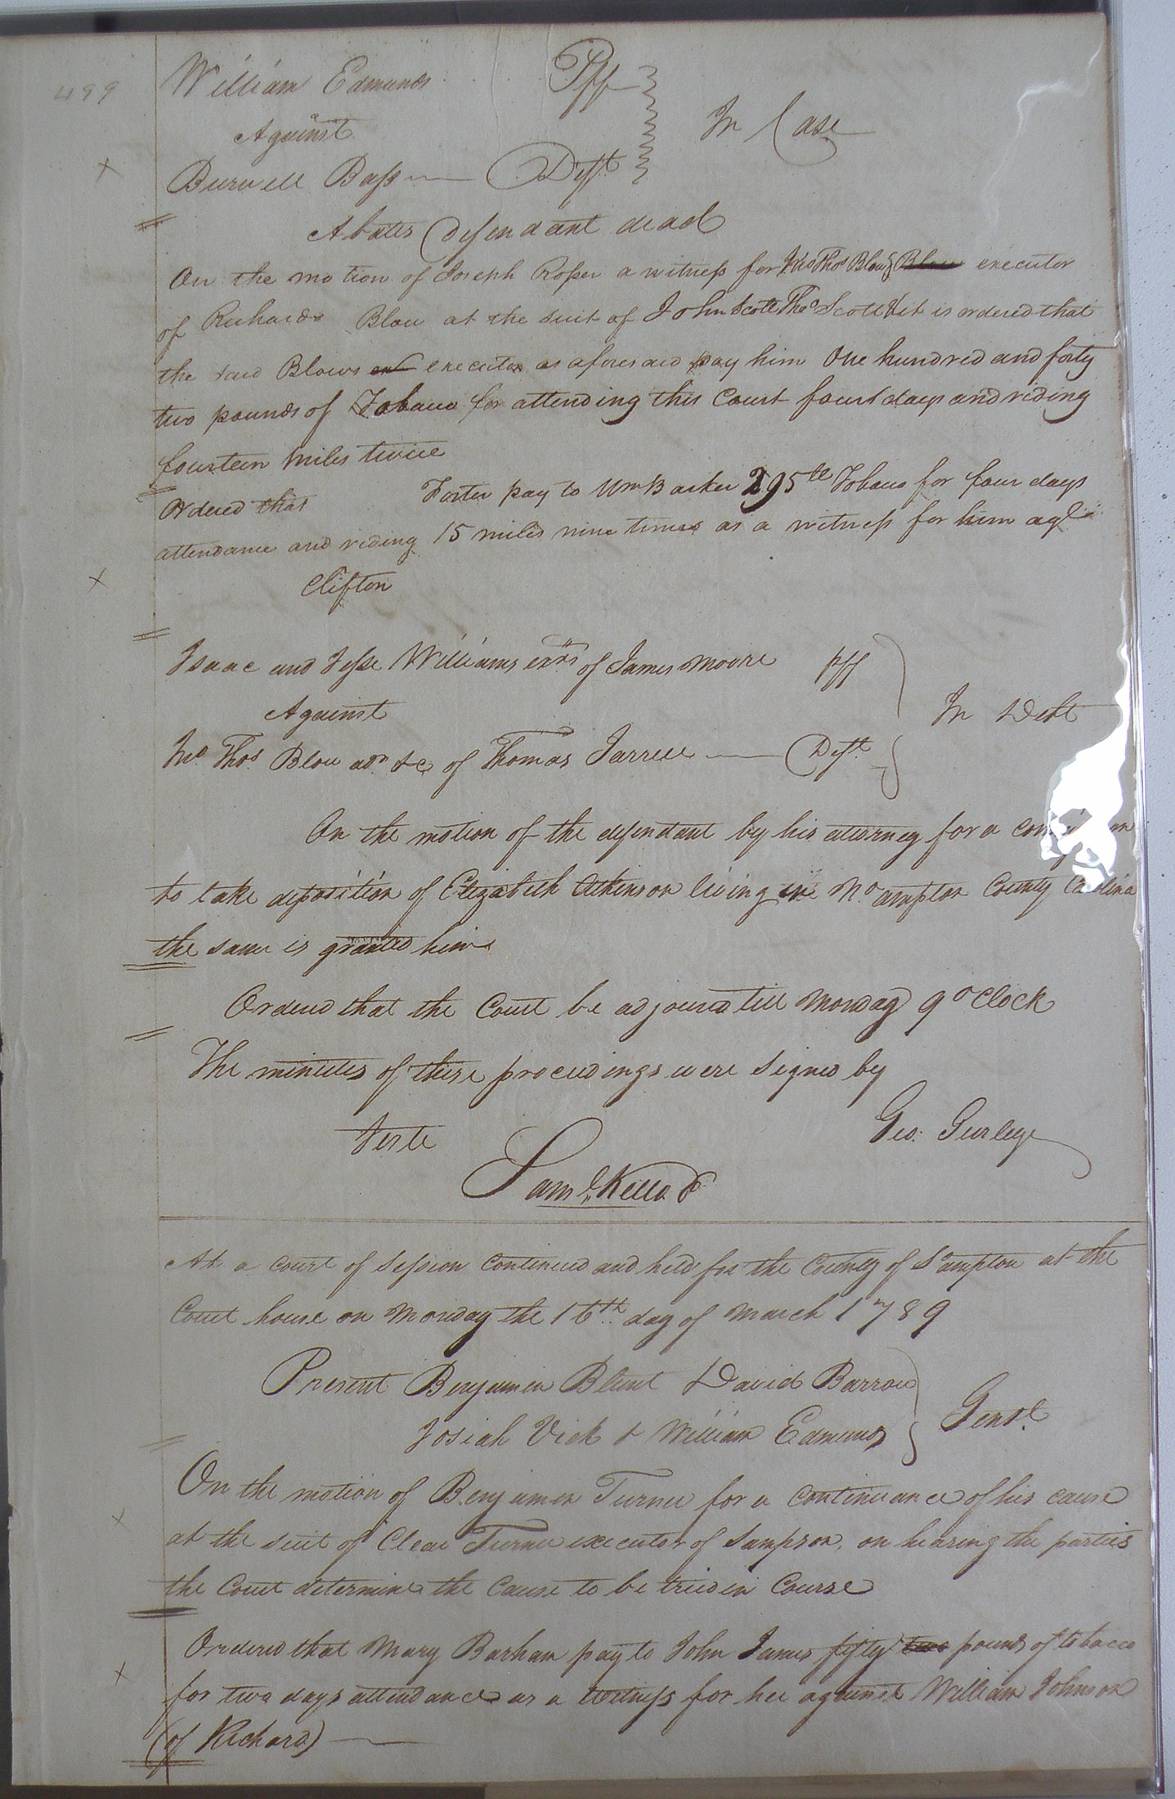 499
William Edmunds Pff
Against In Case
Burwell Bass Deft
Abates Defendant dead
On the motion of Joseph Roser a witness for Jno Thos Blow & Blow executor
of Richard Blow at the suit of John Scott Thos Scott it is ordered that
the said Blows executor as aforesaid pay him One hundred and forty
two pounds of Tobacco for attending this Court four days and riding
fourteen Miles twice
Ordered that Foster pay to Wm Barker 295 lb Tobacco for four days
attendance and riding 15 miles nine times as a witness for him agt
Clifton
Isaac and Jesse Williams exrs of James Moore Pff
Against In Debt
Jno Thos Blow adr &c of Thomas Jarrell Deft
On the motion of the defendant by his attorney for a
to take deposition of Elizabeth Atkinson living in No ampton County Carolina
the same is granted him
Ordered that the Court be adjourd till Monday 9 o Clock
The minutes of these proceedings were signed by
Teste Geo: Gurley
Saml. Kello C
At a court of Session Continued and held for the County of S ampton at the
Court house on Monday the 16th day of March 1789
Present Benjamin Blunt David Barrow
Josiah Vick & William Edmunds Gent.
On the motion of Benjamin Turner for a continuance of his cause
at the suit of Clear Turner executor of Sampson, on hearing the parties
the Court determine the cause to be tried in Course
Ordered that Mary Barham pay to John James fifty two pounds of tobacco
for two days attendance as a witness for her against William Johnson
(of Richard)